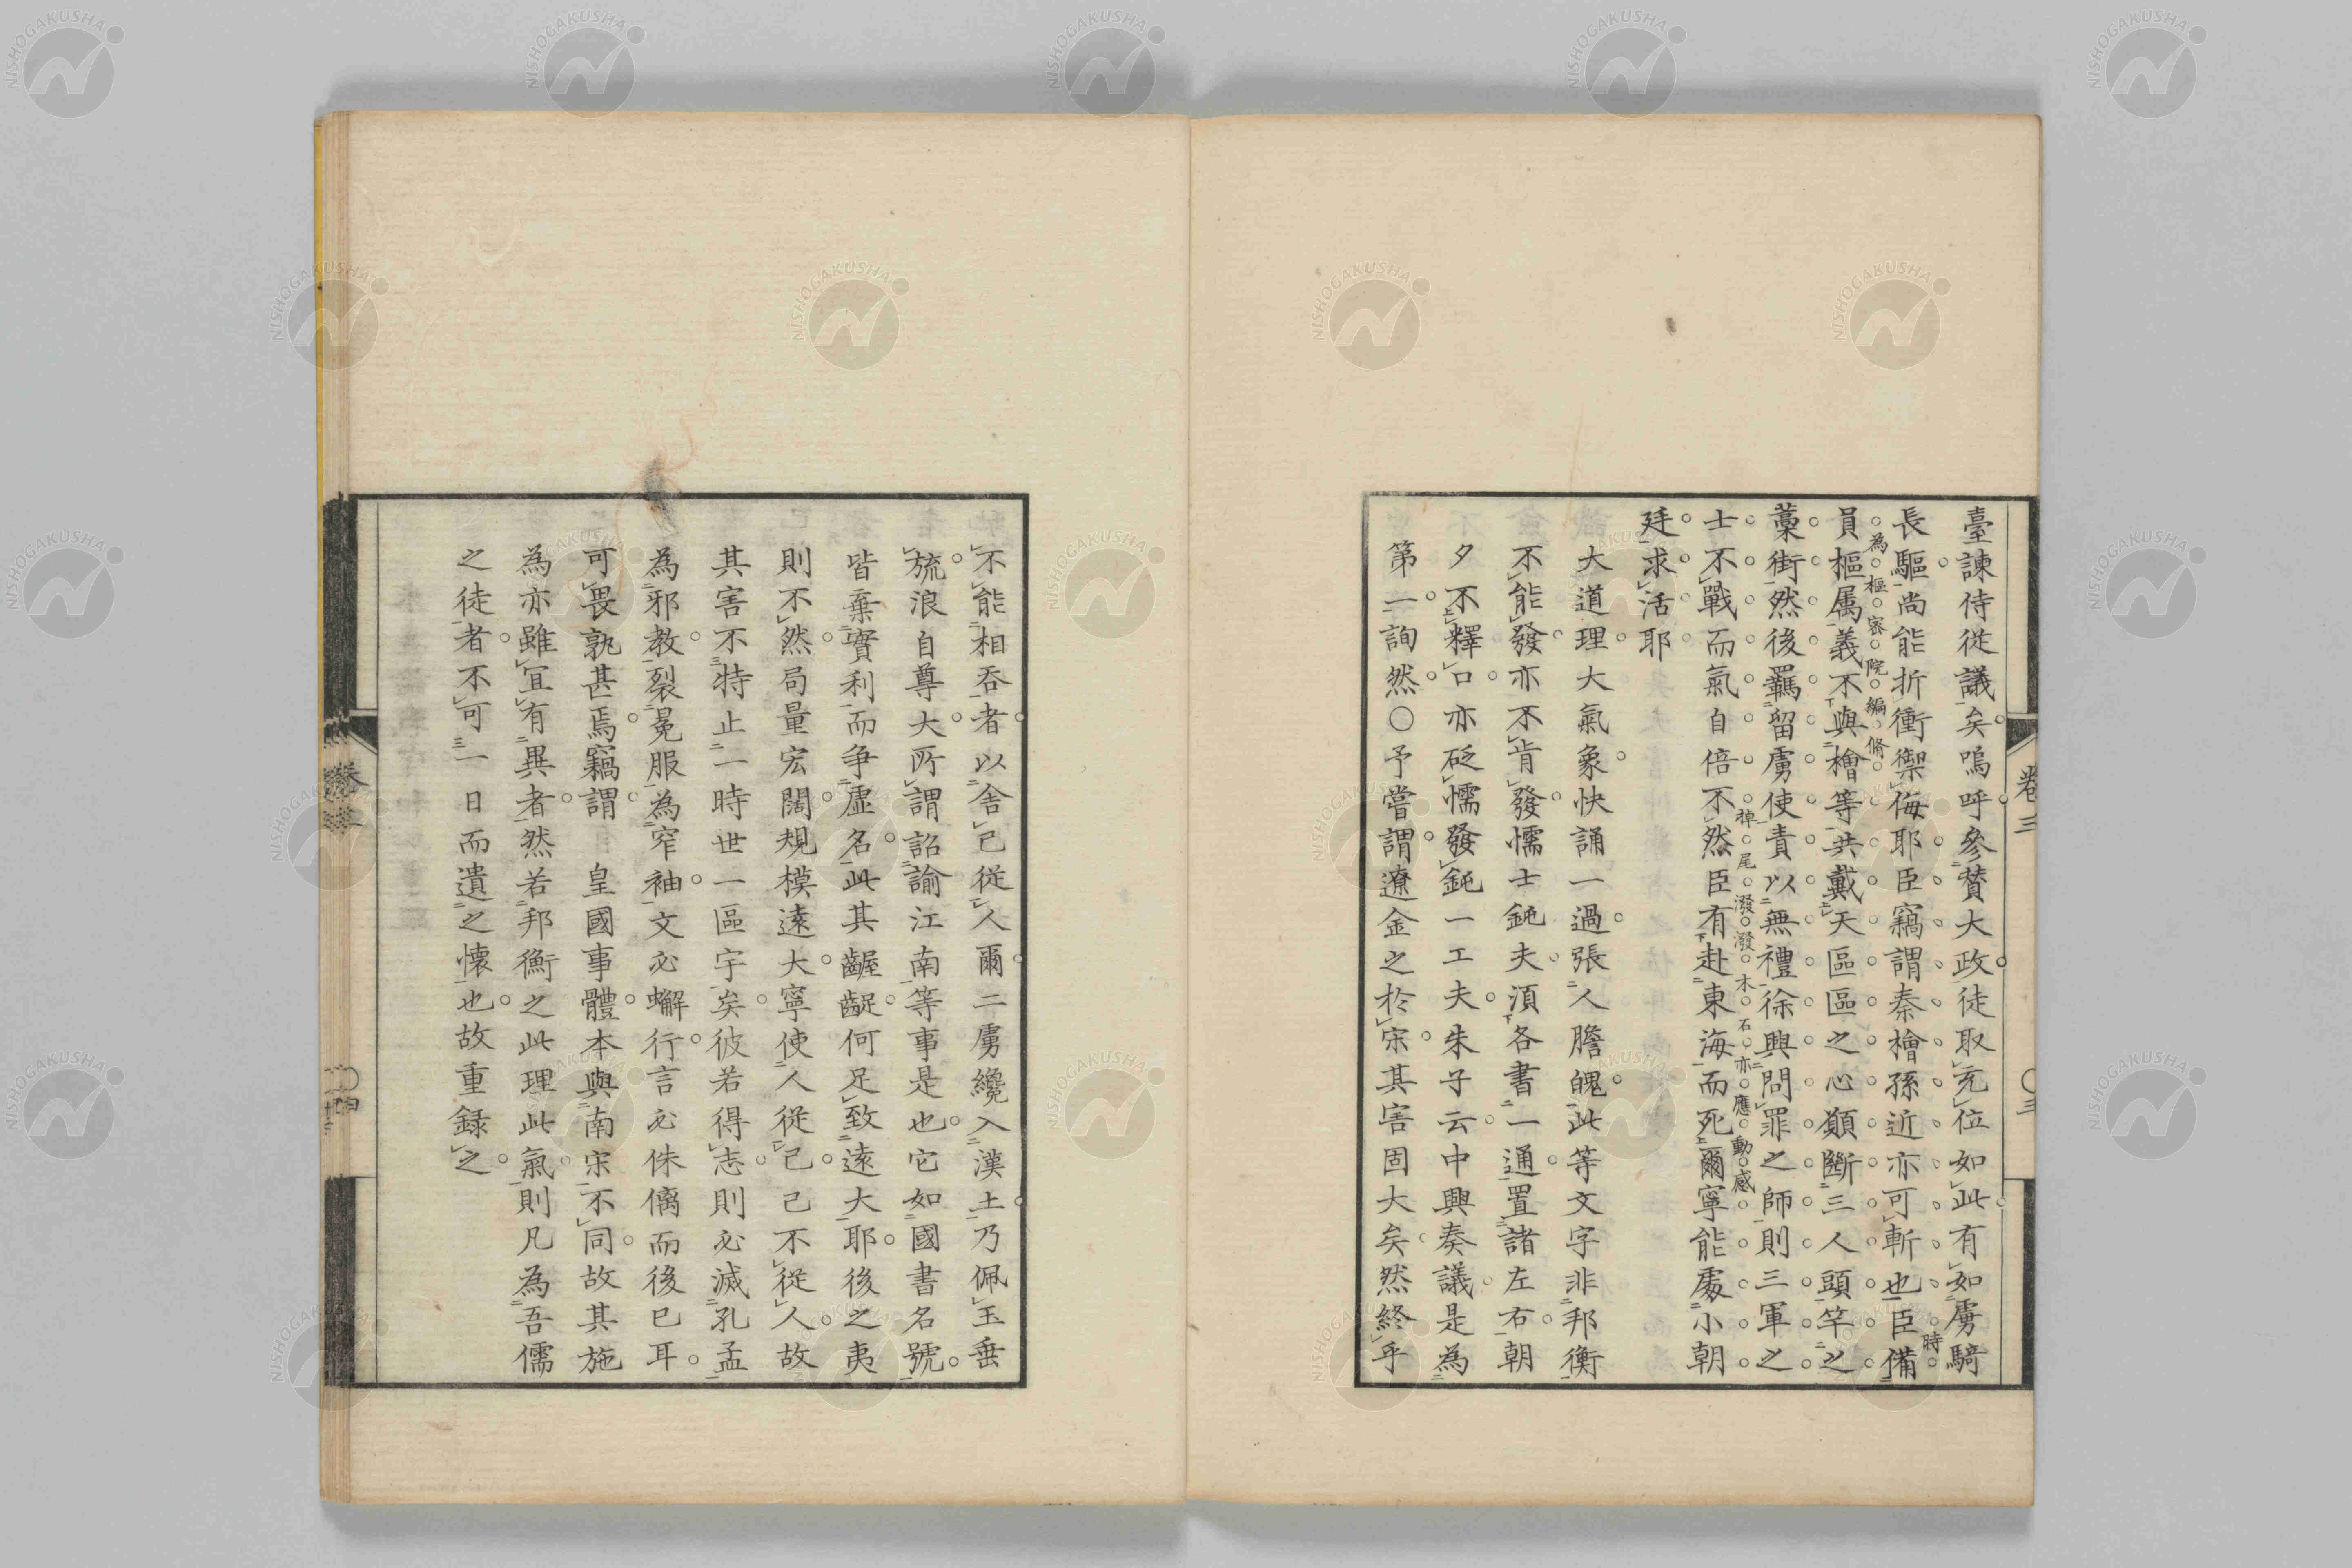 臺諫侍從議矣嗚呼參賛大政徒取充位如此有如虜騎
長驅尚能折衝禦侮耶臣竊謂秦檜孫近亦可斬也臣備
時
員樞属義不與檜等共戴天區區之心願斷三人頭竿之
為樞密院編脩
藁街然後羈留虜使責以無禮徐興問罪之師則三軍之
士不戰而氣自倍不然臣有赴東海而死爾寧能處小朝
掉尾潑潑木石亦應動感
廷求活耶
大道理大氣象快誦一過張人膽魄此等文字非邦衡
不能發亦不肯發懦士鈍夫湏各書一通置諸左右朝
夕不釋口亦砭懦發鈍一工夫朱子云中興奏議是為
第一詢然○予嘗謂遼金之於宋其害固大矣然終乎
卷三
〇三
不能相吞者以舎己從人爾二虜纔入漢土乃佩玉垂
旒浪自尊大所謂詔諭江南等事是也它如國書名號
皆棄實利而争虛名此其齷齪何足致遠大耶後之夷
則不然局量宏闊規模遠大寧使人從己己不從人故
其害不特止一時世一區宇矣彼若得志則必滅孔孟
為邪教裂冕服為窄袖文必蠏行言必侏㒧而後已耳
可畏孰甚焉竊謂　皇國事體本與南宋不同故其施
為亦雖宜有異者然若邦衡之此理此氣則凡為吾儒
之徒者不可一日而遺之懷也故重録之